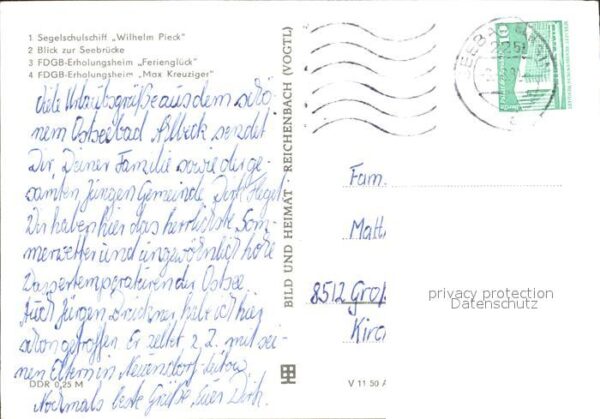 1 Segelschulschiff „Wilhelm Pieck"
2 Blick zur Seebrücke
3 FDGB-Erholungsheim „Ferienglück"
4 FDGB-Erholungsheim „Max Kreuziger"
Viele Urlaubsgrüße aus dem schö-
nem Ostseebad Ahlbeck sendet
Dir, Deiner Familie sowie der ge-
samten Jungen Gemeinde, Dirk
Wir haben hier das herrlichste Som-
merwetter und ungewöhnlich hohe
Wassertemperaturen der Ostsee.
Auch Jürgen habe ich hier
schon getroffen. Er zeltet z. Z. mit sei-
nen Eltern in Neuendorf
Nochmals beste Grüße, Euer Dirk.
DDR 0,25 M
BILD UND HEIMAT REICHENBACH (VOGTL)
V 11 50 A
SEEBAD
225
10
Fam.
Matt
8512 Groß
Kirc
privacy protection
Datenschutz